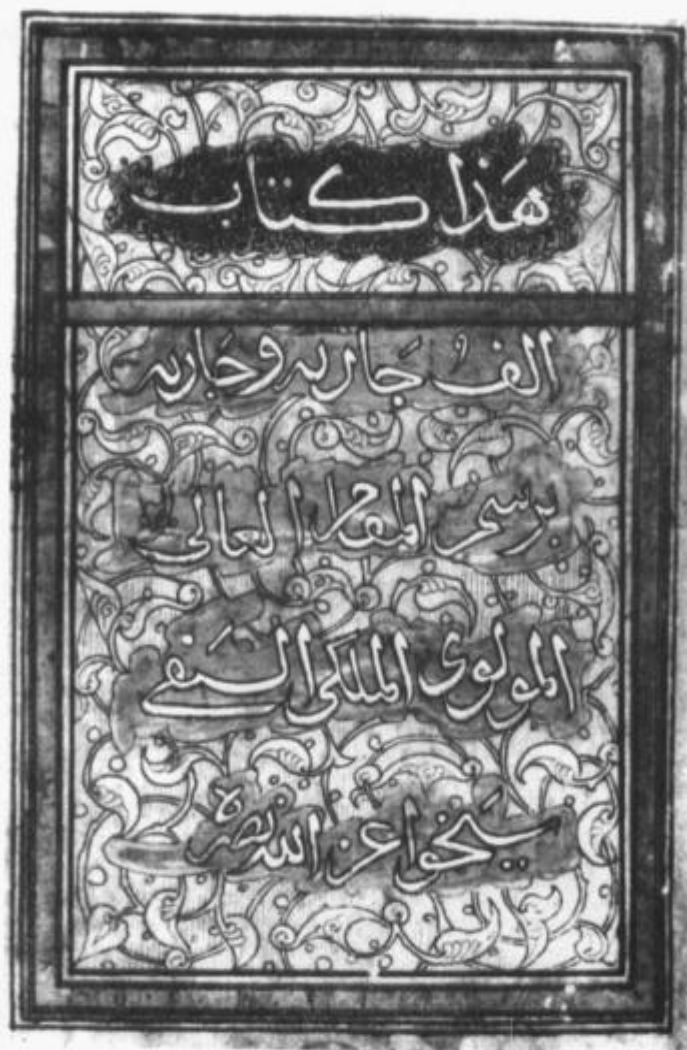 هَذا كتاب
الفُ جَاريه وجَاريه
برسم المقام العالى
المولوى الملكى السَيفى
عز الله نصره